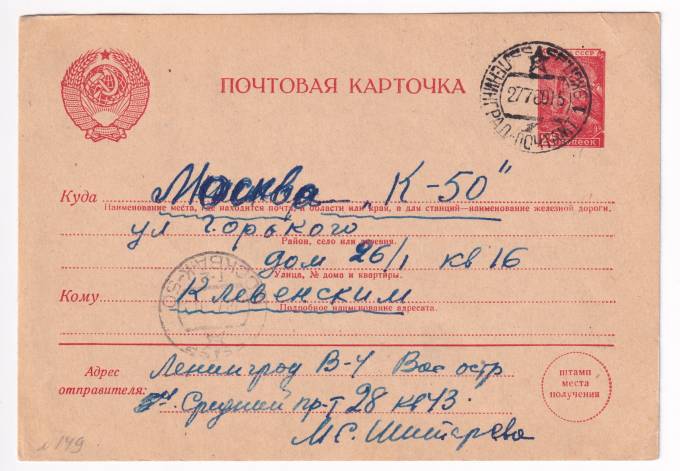 ПОЧТОВАЯ КАРТОЧКА
СССР
Куда Москва „К-50"
Наименование места, где находится почта, и области или края, а для станций—наименование железной дороги.
ул Горького
Район, село или деревня.
дом 26/1 кв 16
Улица, № дома и квартиры.
Кому Клевенским
Подробное наименование адресата.
Адрес отправителя:
Ленинград В-4 Вас остр
Средний пр-т 28 кв 43
М.С. Шитарева
штамп
места
получения
л 149